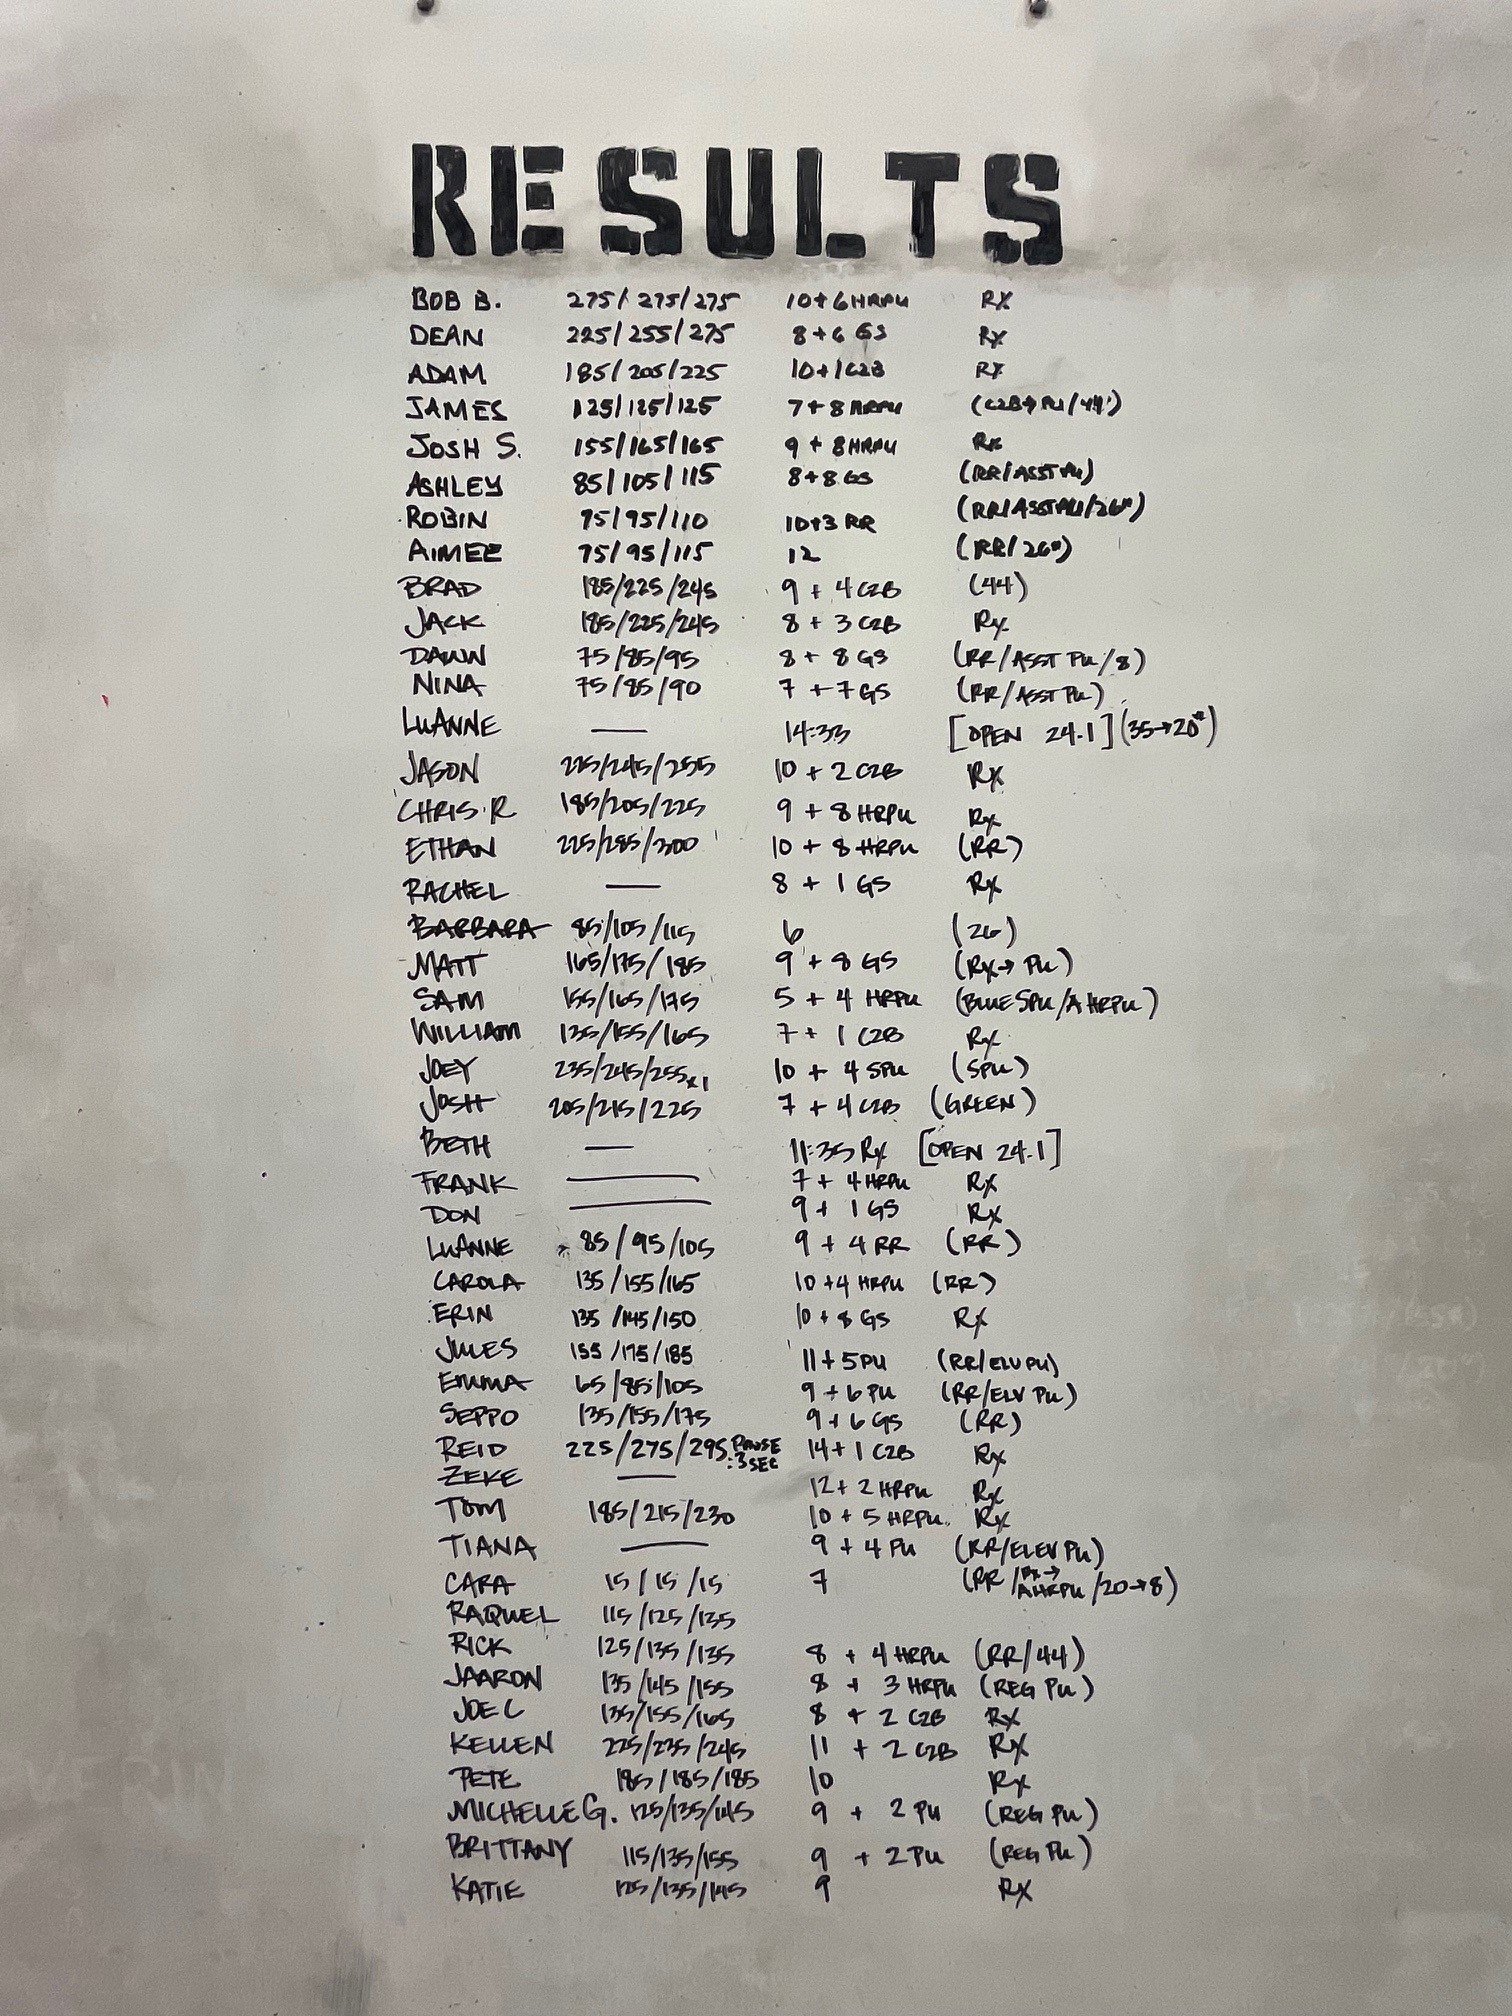 RESULTS
BOB B. 275/275/275 10+6HRPU RX
DEAN 225/255/275 8+6 GS Rx
ADAM 185/205/225 10+1C2B RX
JAMES 125/125/125 7+8HRPU (C2B→PU/44')
JOSH S. 155/165/165 9+8HRPU Rx
ASHLEY 85/105/115 8+8GS (RR/ASSTPU)
ROBIN 75/95/110 10+3 RR (RR/ASSTPU/26#)
AIMEE 75/95/115 12 (RR/26#)
BRAD 185/225/245 9 + 4C2B (44)
JACK 185/225/245 8 + 3 C2B Rx
DAWN 75/85/95 8 + 8GS (RR/ASST PU/8)
NINA 75/85/90 7 +7GS (RR/ASSTPU)
LUANNE — 14:33 [OPEN 24.1] (35→20#)
JASON 225/245/255 10 + 2 C2B Rx
CHRIS R 185/205/225 9 + 8 HRPU Rx
ETHAN 225/285/300 10 + 8 HRPU (RR)
RACHEL — 8 + 1 GS Rx
BARBARA 85/105/115 6 (26)
MATT 165/175/185 9 + 8 GS (Rx→ PU)
SAM 155/165/175 5 + 4 HRPU (BLUE SPU/A HRPU)
WILLIAM 135/155/165 7 + 1 C2B Rx
JOEY 235/245/255x1 10 + 4 SPU (SPU)
JOSH 205/215/225 7 + 4C2B (GREEN)
BETH — 11:35 Rx [OPEN 24.1]
FRANK — 7 + 4HRPU Rx
DON — 9 + 1GS Rx
LUANNE 85/95/105 9 + 4 RR (RR)
CAROLA 135/155/165 10 +4 HRPU (RR)
ERIN 135/145/150 10 + 8 GS Rx
JULES 155/175/185 11+5PU (RR/ELVPU)
EMMA 65/85/105 9 + 6 PU (RR/ELV PU)
SEPPO 135/155/175 9 + 6 GS (RR)
REID 225/275/295 PAUSE :3SEC 14+1 C2B Rx
ZEKE — 12+ 2 HRPU Rx
TOM 185/215/230 10 + 5 HRPU. Rx
TIANA — 9 + 4 PU (RR/ELEV PU)
CARA 15/15/15 7 (RR/Rx→AHRPU/20→8)
RAQUEL 115/125/135
RICK 125/135/135 8 + 4 HRPU (RR/44)
JAARON 135/145/155 8 + 3 HRPU (REG PU)
JOE C 135/155/165 8 + 2 C2B Rx
KELLEN 225/235/245 11 + 2 C2B Rx
PETE 185/185/185 10 Rx
MICHELLE G. 125/135/145 9 + 2 PU (REG PU)
BRITTANY 115/135/155 9 + 2 PU (REG PU)
KATIE 125/135/145 9 RX